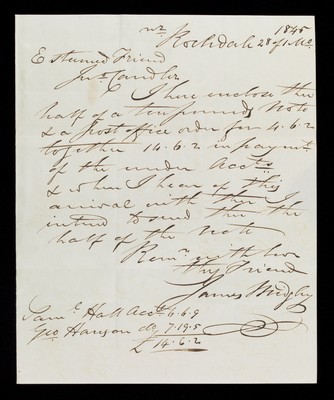 nr 1845
Rochdale 28 of 1 Mo
Esteemed Friend
Jno Candler
I here enclose thee
half of a ten pound Note
& a post office order for 4.6.2
together 14.6.2 in payment
of the under Accts
& when I hear of this
arrival with thee I
intend to send thee the
half of the Note
Remn with love
thy Friend
James Midgley
Saml Hall Acct 6.6.9
Geo Hanson do 7.19.5
£14.6.2